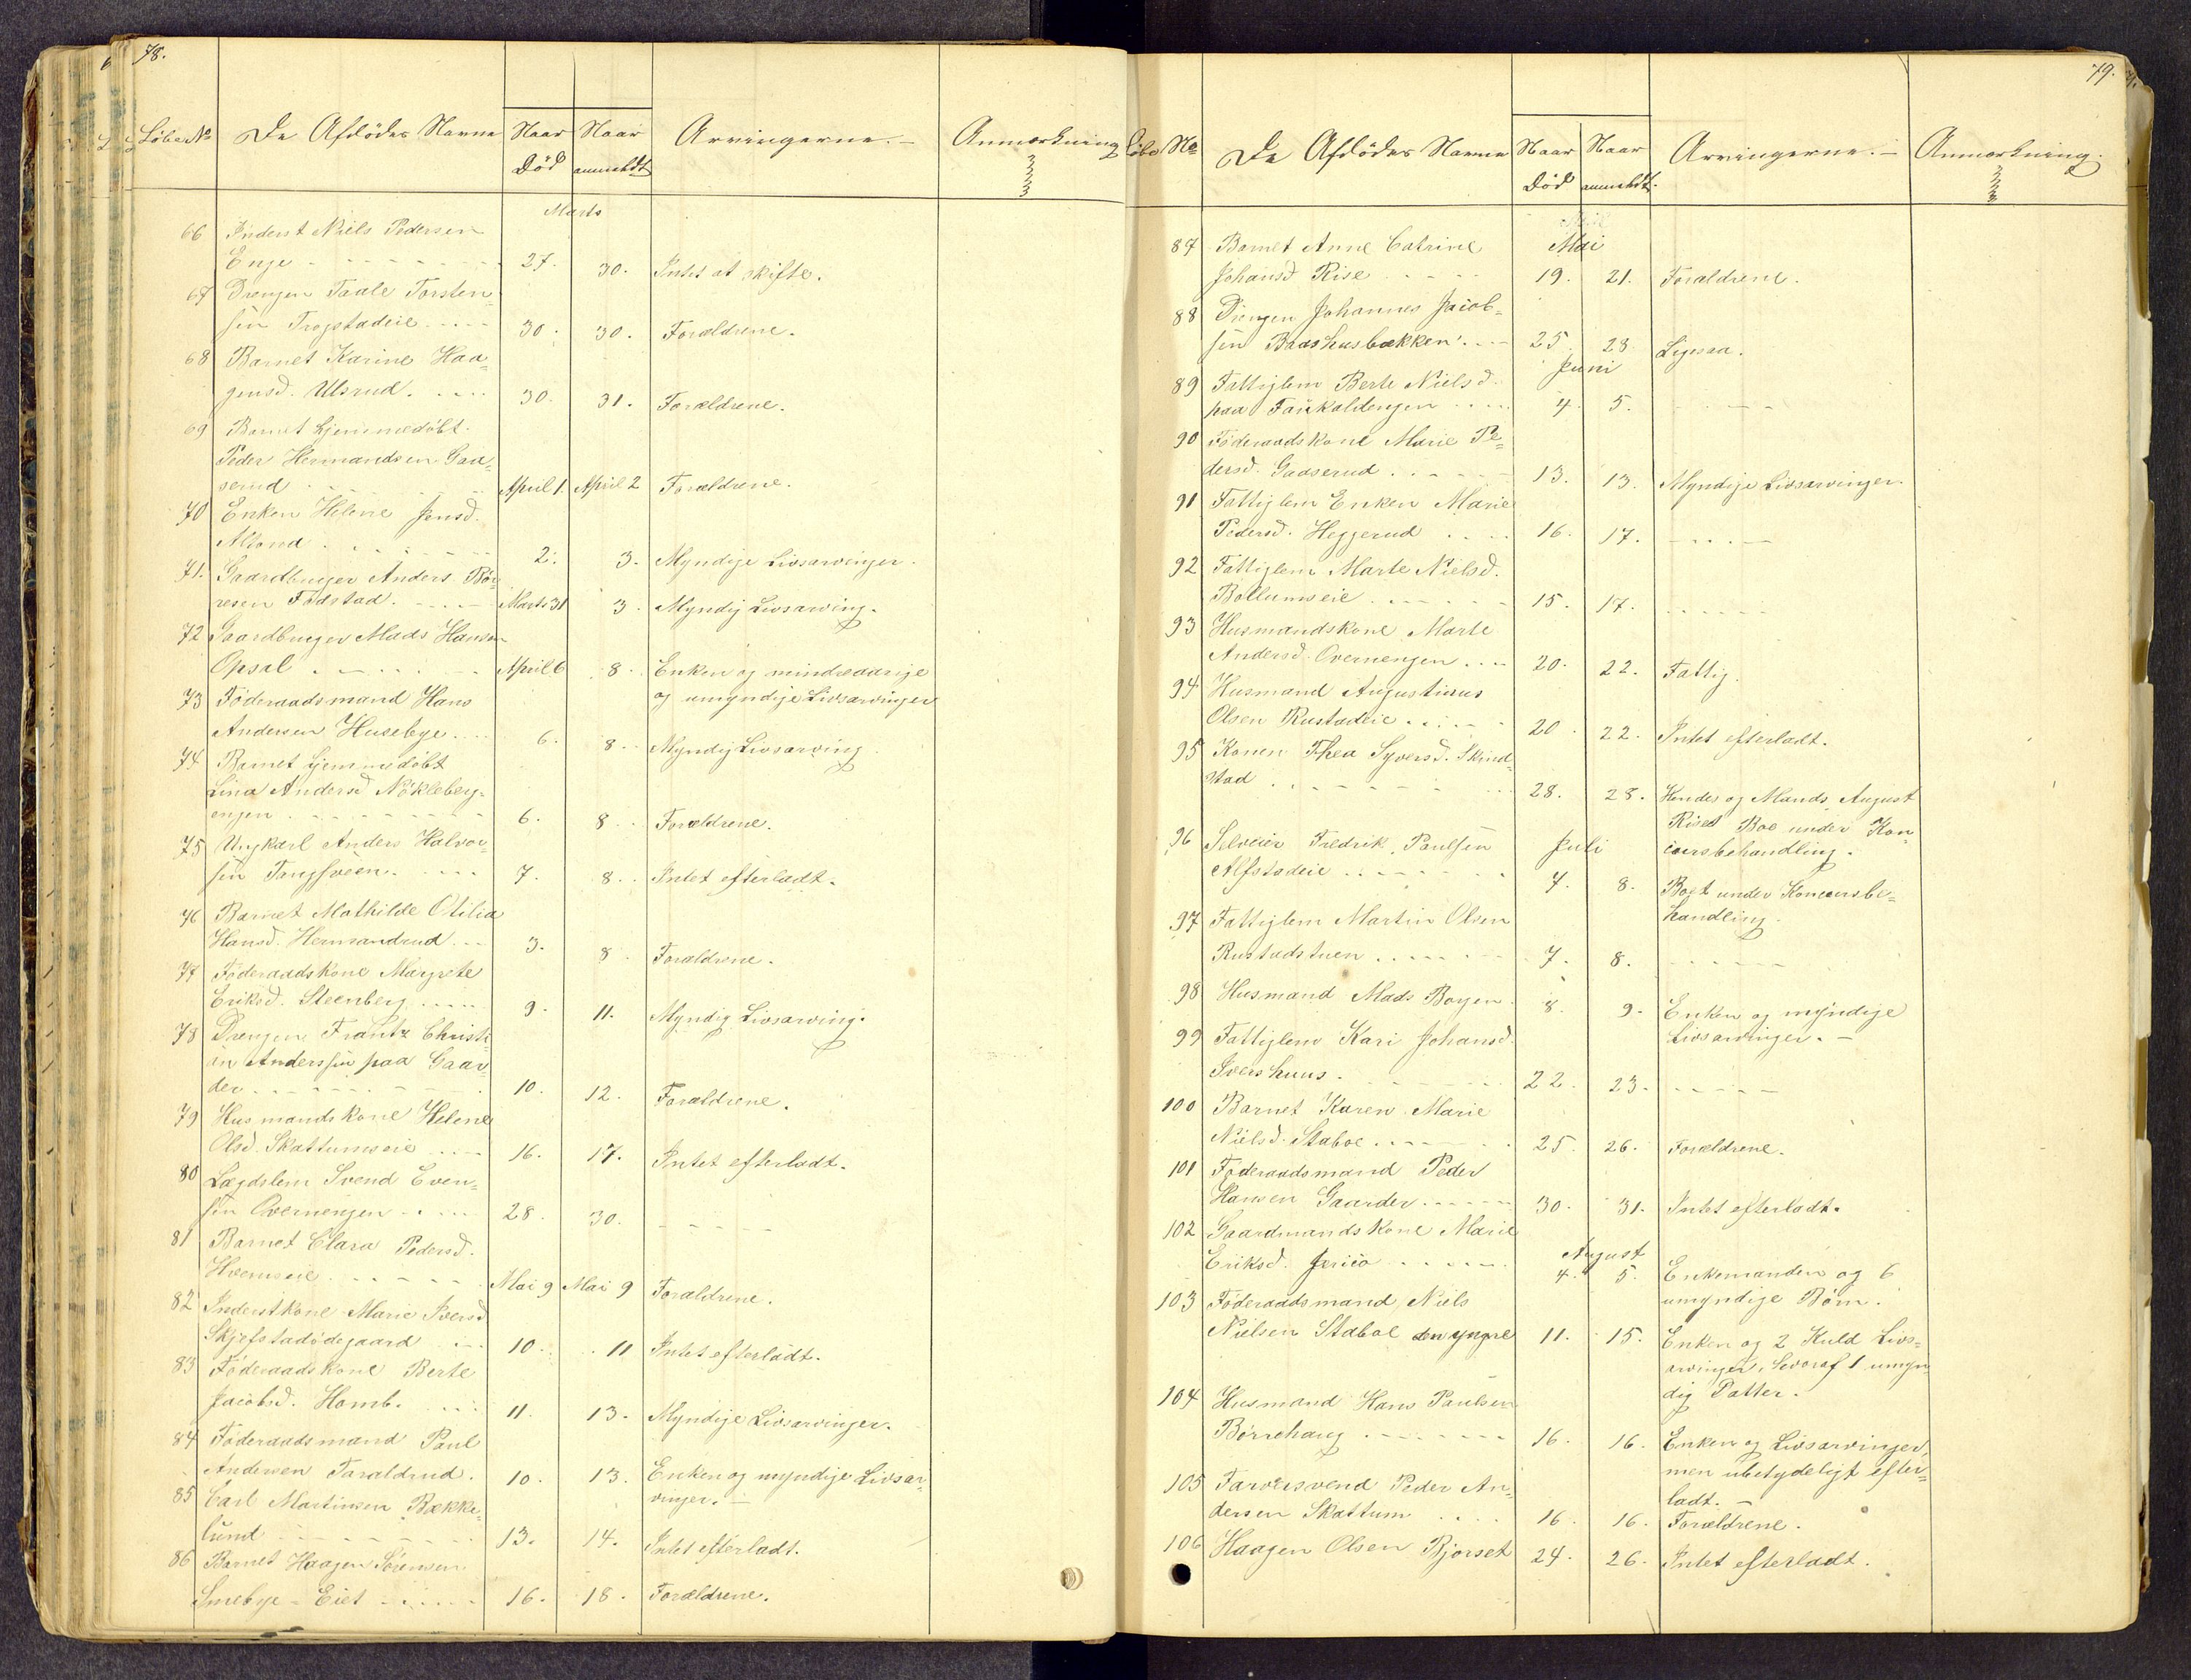 78.
Løbe No De Afdødes Navne Naar Død Naar anmeldt Arvingerne.- Anmærkning
Marts
66 Inderst Niels Pedersen
Enge 27. 30. Intet at skifte.
67 Drengen Taale Torsten-
sen Trogstadeie 30. 30. Forældrene.
68 Barnet Karine Haa-
gensd. Ulsrud. 30. 31. Forældrene.
69 Barnet hjemmedøbt.
Peder Hermandsen Gaa-
serud April 1. April 2 Forældrene.
70 Enken Helene Jensd.
2. 3. Myndige Livsarvinger.
71. Gaardbruger Anders Bør-
resen Fodstad. Marts 31 3. Myndig Livsarving.
72 Gaardbruger Mads Hansen
Opsal April 6 8. Enken og mindreaarige
og umyndige Livsarvinger
73 Föderaadsmand Hans
Andersen Husebye 6. 8. Myndig Livsarving
74 Barnet hjemmedöbt
Lina Andersd Nökleberg-
engen 6. 8. Forældrene.
75 Ungkarl Anders Halvor-
sen Tangsveen. 7. 8. Intet efterladt.
76 Barnet Mathilde Otilia
Hansd. Hermandrud 3. 8. Forældrene.
77 Föderaadskone Margrete
Eriksd. Steenberg 9. 11. Myndig Livsarving.
78 Drengen Frantz Christi-
an Anderssen paa Gaar-
der 10. 12. Forældrene.
79 Husmandskone Helene
Olsd. Skattumseie 16. 17. Intet efterladt.
80 Lægdslem Svend Even-
sen Overnengen 28. 30. - - - - -
81 Barnet Clara Pedersd.
Mai 9 Mai 9 Forældrene.
82 Inderstkone Marie Iversd
Skjefstadødegaard 10. 11 Intet efterladt.
83 Föderaadskone Berte
Jacobsd. Homb. 11. 13. Myndige Livsarvinger.
84 Föderaadsmand Paul
Andersen Taraldrud. 10. 13. Enken og myndige Livsar-
vinger.-
85 Carl Martinsen Bække-
lund 13. 14. Intet efterladt.
86 Barnet Haagen Sörensen
Smebye-Eiet 16. 18. Forældrene.
79.
Løbe No De Afdødes Navne Naar Død Naar anmeldt. Arvingerne.- Anmærkning.
87 Barnet Anne Catrine Mai
Johansd Rise 19. 21. Forældrene.
88 Drengen Johannes Jacob-
sen Baashusbækken 25. 28 Ligesaa.
Juni
89 Fattiglem Berte Nielsd.
paa Faukaldengen 4. 5. - - - -
90 Föderaadskone Marie Pe-
dersd. Gaaserud 13. 13. Myndige Livsarvinger.
91 Fattiglem Enken Marie
Pedersd. Heggerud 16. 17. - - - -
92 Fattiglem Marte Nielsd.
Bollumseie 15. 17. - - - - -
93 Husmandskone Marte
Andersd. Overnengen 20. 22. Fattig.
94 Husmand Augustinus
Olsen Rustadeie 20. 22. Intet efterladt.
95 Konen Thea Syversd. Skind-
stad 28. 28. Hendes og Mands, August
Riises Boe under Kon-
cursbehandling.
96 Selveier Fredrik Paulsen Juli
Alfstadeie 7. 8. Boet under Koncursbe-
handling.
97 Fattiglem Martin Olsen
Rustadstuen 7. 8. - - - - -
98 Husmand Mads Boyen 8. 9. Enken og myndige
Livsarvinger.-
99 Fattiglem Kari Johansd.
Ivershuus. 22. 23. - - - - -
100 Barnet Karen Marie
Nielsd. Staboe 25. 26. Forældrene.
101 Föderaadsmand Peder
Hansen Gaarder 30. 31. Intet efterladt.
102 Gaardmandskone Marie
August
Eriksd. Jerico 4. 5. Enkemanden og 6
umyndige Börn.
103 Föderaadsmand Niels
Nielsen Staboe den yngre 11. 15. Enken og 2 Kuld Livs-
arvinger, hvoraf 1 umyn-
dig Datter.
104 Husmand Hans Paulsen
Börrehaug 16. 16. Enken og Livsarvinger
men ubetydeligt efter-
ladt.-
105 Farversvend Peder An-
dersen Skattum 16. 16. Forældrene.
106 Haagen Olsen Bjorset 24. 26. Intet efterladt.